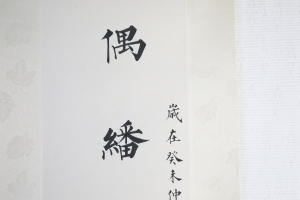 偶繙
歲在癸未仲